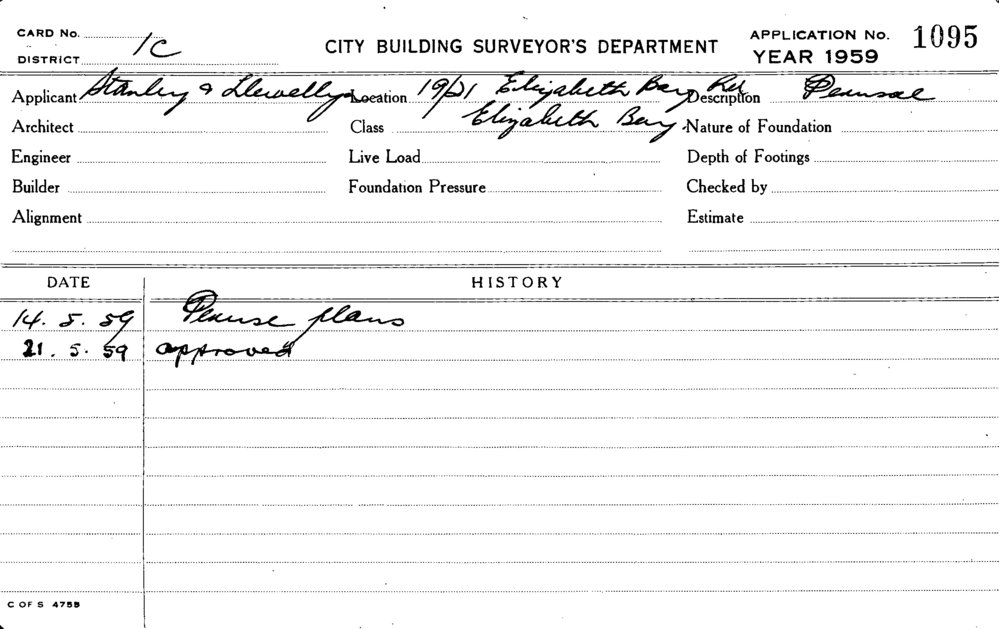 CARD No.
DISTRICT 1C
CITY BUILDING SURVEYOR'S DEPARTMENT
APPLICATION No. 1095
YEAR 1959
Applicant Stanley & Llewellyn Location 19/21 Elizabeth Bay Rd Description Perusal
Architect Class Elizabeth Bay. Nature of Foundation
Engineer Live Load Depth of Footings
Builder Foundation Pressure Checked by
Alignment Estimate
DATE HISTORY
14. 5. 59 Peruse plans
21. 5. 59 approved
C OF S 475B